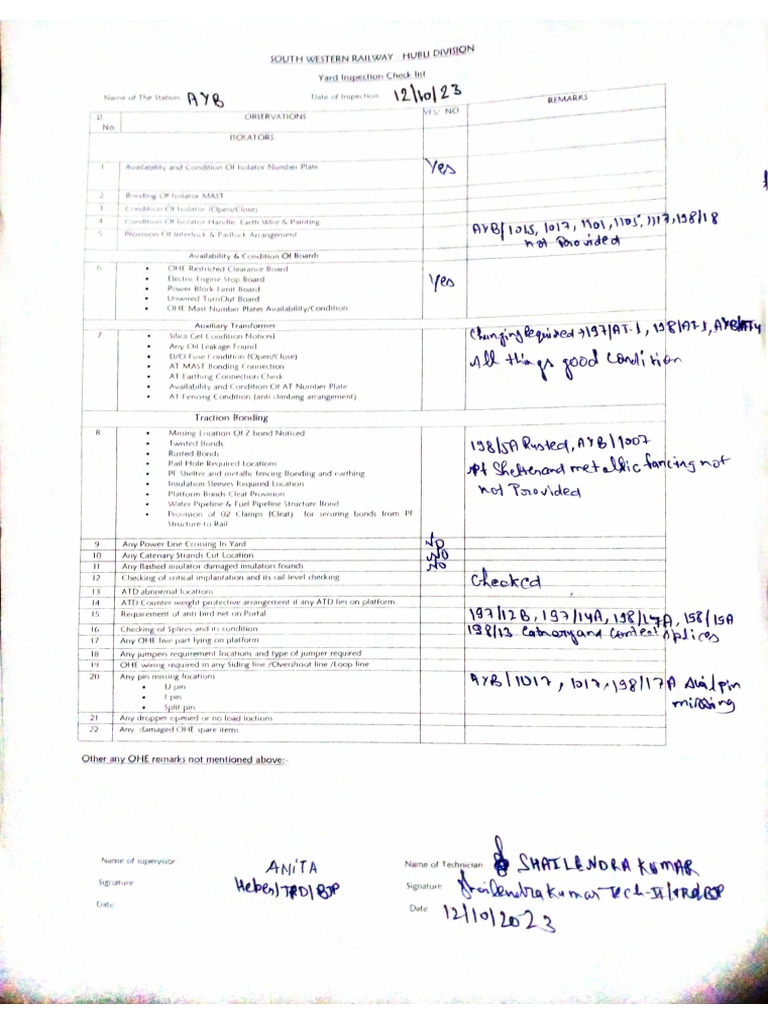 SOUTH WESTERN RAILWAY - HUBLI DIVISION
Yard Inspection Check list
Name of The Station AYB Date of Inspection 12/10/23
Sl. No OBSERVATIONS YES/ NO REMARKS
ISOLATORS
1 Availability and Condition Of Isolator Number Plate Yes
2 Bonding Of Isolator MAST
3 Condition Of Isolator (Open/Close)
4 Condition Of Isolator Handle, Earth Wire & Painting
5 Provision Of Interlock & Padlock Arrangement AYB/1015, 1017, 1101, 1105, 1117, 198/18
not Provided
Availability & Condition Of Boards
6 • OHE Restricted Clearance Board
• Electric Engine Stop Board Yes
• Power Block Limit Board
• Unwired TurnOut Board
• OHE Mast Number Plates Availability/Condition
Auxiliary Transformer
7 • Silica Gel Condition Noticed Changing Required → 197/AT-1, 198/AT-1, AYB/AT4
• Any Oil Leakage Found
• D/O Fuse Condition (Open/Close) All things good condition
• AT MAST Bonding Connection
• AT Earthing Connection Check
• Availability and Condition Of AT Number Plate
• AT Fencing Condition (anti climbing arrangement)
Traction Bonding
8 • Missing Location Of Z bond Noticed
• Twisted Bonds 198/5A Rusted, AYB/1007
• Rusted Bonds
• Rail Hole Required Locations
• PF Shelter and metallic fencing Bonding and earthing Pf Shelter and metallic fancing not
• Insulation Sleeves Required Location
• Platform Bonds Cleat Provision not Provided
• Water Pipeline & Fuel Pipeline Structure Bond
• Provision of 02 Clamps (Cleat) for securing bonds from PF
Structure to Rail.
9 Any Power Line Crossing In Yard No
10 Any Catenary Strands Cut Location No
11 Any flashed insulator damaged insulators founds No
12 Checking of critical implantation and its rail level checking Checked
13 ATD abnormal locations
14 ATD Counter weight protective arrangement if any ATD lies on platform
15 Requirement of anti bird net on Portal 197/12B, 197/14A, 198/17A, 198/15A
16 Checking of Splices and its condition 198/13 Catnery and contect splices
17 Any OHE live part lying on platform
18 Any jumpers requirement locations and type of jumper required
19 OHE wiring required in any Siding line /Overshoot line /Loop line
20 Any pin missing locations AYB/1017, 1017, 198/17A pin
• U pin missing
• I pin
• Split pin
21 Any dropper opened or no load loctions
22 Any damaged OHE spare items
Other any OHE remarks not mentioned above:-
Name of supervisor ANITA Name of Technician SHAILENDRA KUMAR
Signature Helper/TRD/BJP Signature Shailendra Kumar Tech-II/TRD/BJP
Date Date 12/10/2023